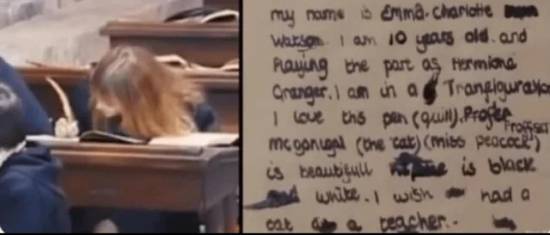 my name is Emma. Charlotte
Watson. I am 10 years old. and
Playing the part as Hermione
Granger. I am in a Transfiguration
I love ths pen (quill). Profer
Proffser
mcgonugal (the cat) (miss peacock)
is beautifull is black
white. I wish had a
cat as a teacher.